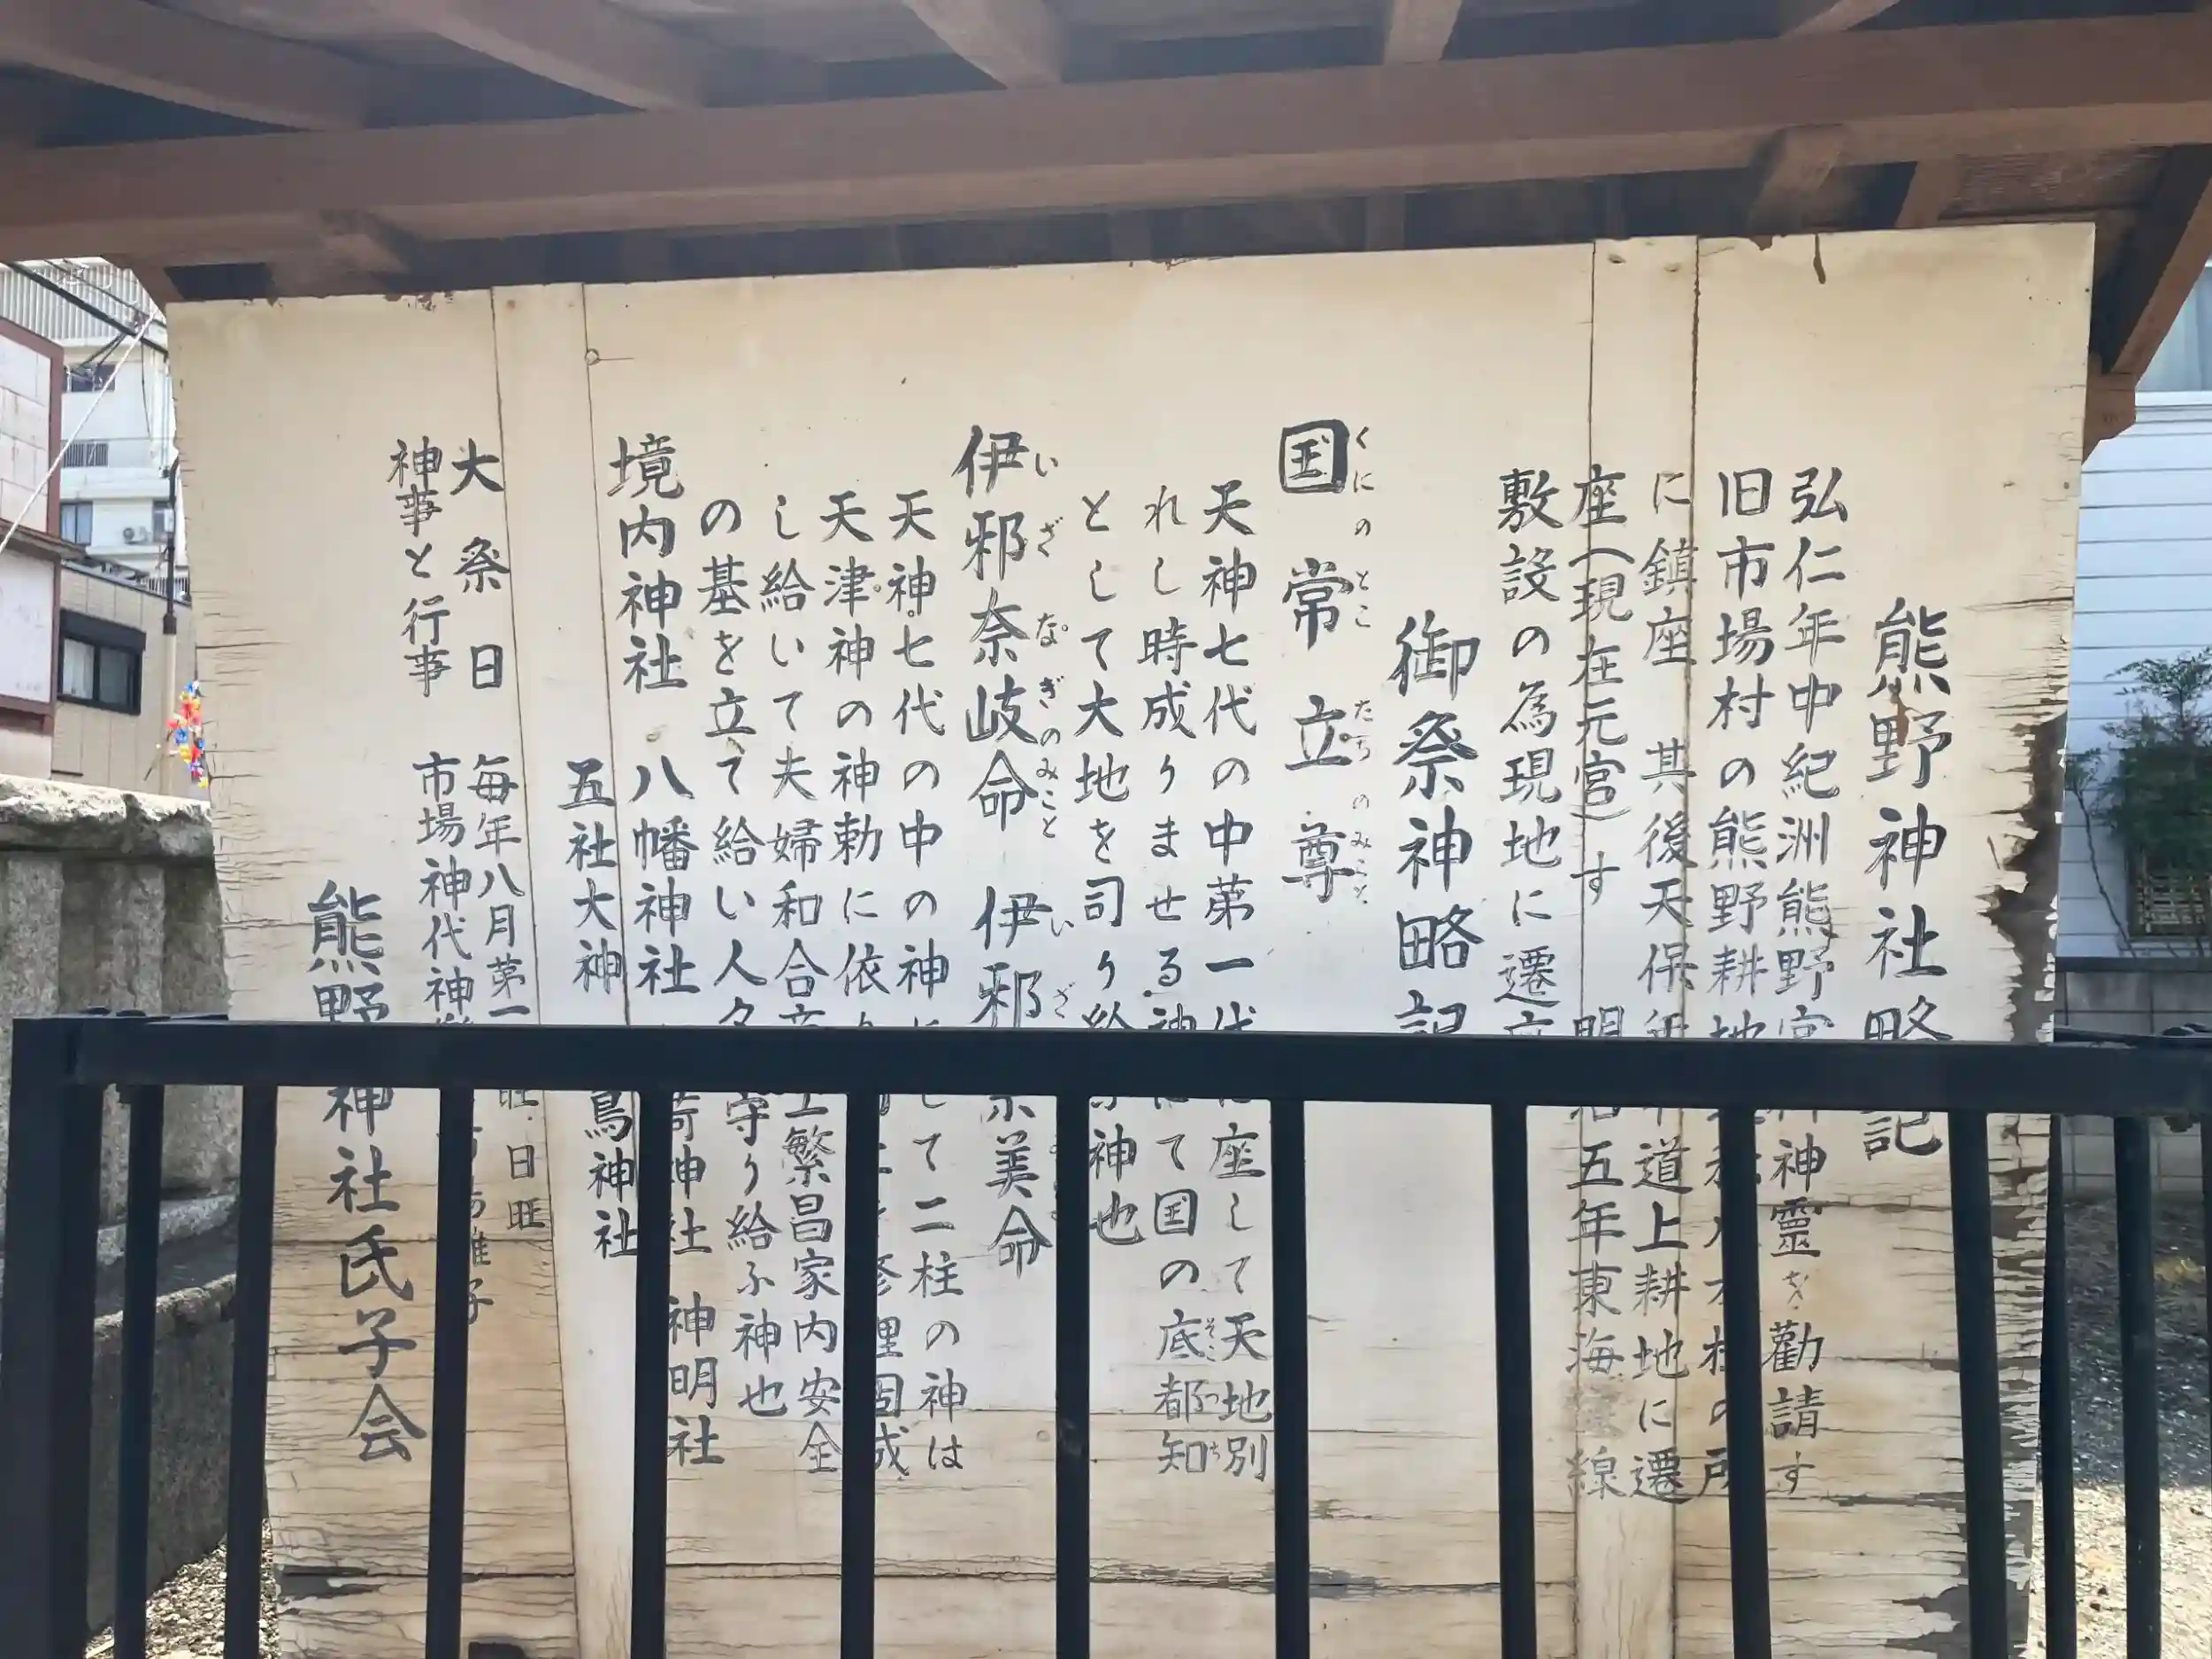 熊野神社略記
弘仁年中紀洲熊野宮 神霊を勧請す
旧市場村の熊野耕地
に鎮座 其後天保年 道上耕地に遷
座(現在元宮)す 明 五年東海 線
敷設の為現地に遷座
御祭神略記
国常立尊
くにのとこたちのみこと
天神七代の中第一代 座して天地別
れし時成りませる神 にて国の底都知
そこつち
として大地を司り給 神也
伊邪奈岐命 伊邪奈美命
いざなぎのみこと いざ
天神七代の中の神に して二柱の神は
天津神の神勅に依り 修理固成
し給いて夫婦和合 繁昌家内安全
の基を立て給い人々 守り給ふ神也
境内神社 八幡神社 神社 神明社
五社大神 神社
大祭日 毎年八月第一 日旺
神事と行事 市場神代神楽
熊野神社氏子会